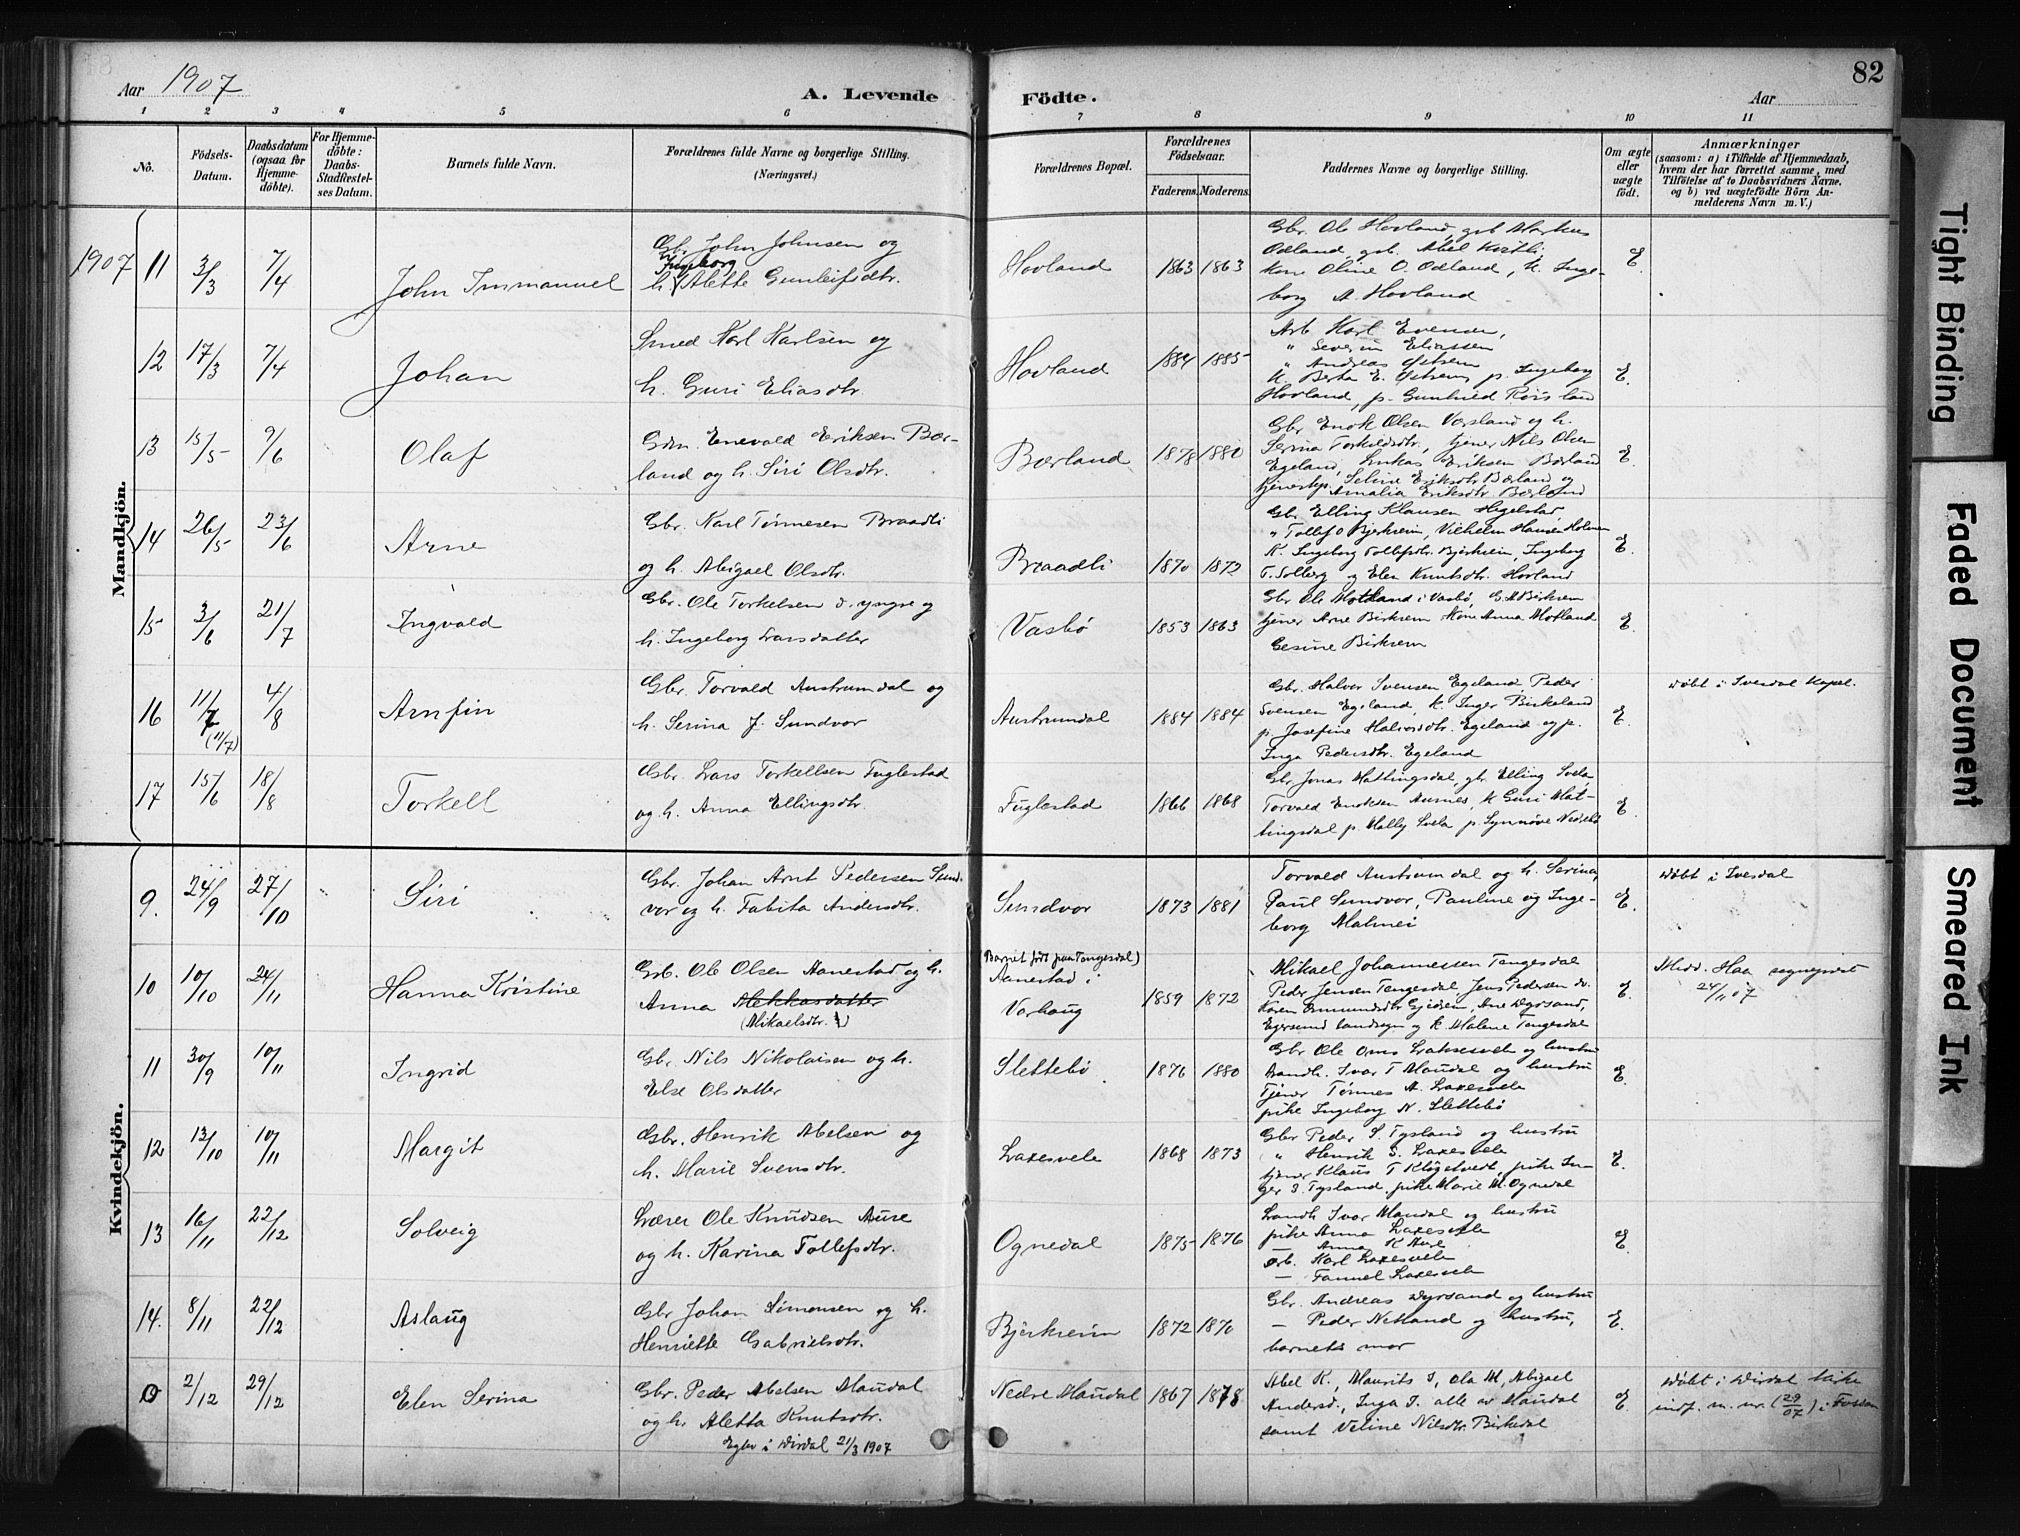 82
Aar 1907
A. Levende Födte.
Aar
1 2 3 4 5 6 7 8 9 10 11
No.
Födsels-
Datum.
Daabsdatum
(ogsaa for
Hjemme-
döbte).
For Hjemme-
döbte:
Daabs-
Stadfæstel-
ses Datum.
Barnets fulde Navn.
Forældrenes fulde Navne og borgerlige Stilling.
(Næringsvei.)
Forældrenes Bopæl.
Forældrenes
Födselsaar.
Faderens. Moderens.
Faddernes Navne og borgerlige Stilling.
Om ægte
eller
uægte
födt.
Anmærkninger
(saasom: a) i Tilfælde af Hjemmedaab,
hvem der har forrettet samme, med
Tilföielse af to Daabsvidners Navne.
og b) ved uægtefödte Börn An-
melderens Navn m. V.)
Mandkjön.
1907 11 3/3 7/4 John Immanuel
Gbr. John Johnsen og
Ingeborg
h. Alette Gunleifsdtr.
Hovland 1863 1863
Gbr. Ole Hovland, gbr Markus
Odland, gbr. Abel
kone Oline O. Odland, k. Inge-
borg A. Hovland
E.
12 17/3 7/4 Johan
Smed Karl Karlsen og
h. Guri Eliasdtr.
Hovland 1884 1885
Arb Karl Evensen,
" Severin Eliassen
" Andreas
K. Berta E. p. Ingeborg
Hovland, p. Gunhild
E.
13 15/5 9/6 Olaf
Gdm. Enevald Eriksen Bær-
land og h. Siri Olsdtr.
Bærland 1878 1880
Gbr Enok Olsen Vassland og h.
Serina Torkeldsdtr., tjener Nils Olsen
Egeland, Lukas Eriksen Bærland
tjenestep. Seline Eriksdtr Bærland og
Amalia Eriksdtr. Bærland
E.
14 26/5 23/6 Arne
Gbr. Karl Tønnesen Braadli
og h. Abigael Olsdtr.
Braadli 1870 1872
Gbr. Elling Klausen Hegelstad
" Tollef O Bjerkreim, Vilhelm Hansen Holmen
K. Ingeborg Tollefsdtr. Bjerkreim, Ingeborg
T. Solberg og Elen Knutsdtr. Hovland
E.
15 3/6 21/7 Ingvald
Gbr. Ole Torkelsen d. yngre og
h. Ingeborg Larsdatter
Vasbø 1853 1863
Gbr Ole Motland i Vasbø, G. A Birkrem
tjener Arne Birkrem Kone Anna Motland
Gesine Birkrem
E.
16 11/7 (11/7) 4/8 Arnfin
Gbr. Torvald Austrumdal og
h. Serina J. Sundvor
Austrumdal 1884 1884
Gbr. Halvor Svensen Egeland Peder
Svensen Egeland, k. Inger Birkeland
p. Josefine Halvorsdtr. Egeland og p.
Inga Pedersdtr. Egeland
E.
døbt i Ivesdal Kapel.
17 15/6 18/8 Torkell
Gbr. Lars Torkellsen Fuglestad
og h. Anna Ellingsdtr.
Fuglestad 1866 1868
Gbr. Jonas Mattingsdal, gbr. Elling Svela,
Torvald Enoksen Ausnes, k Guri Mat-
tingsdal p. Mally Svela p. Synnøve
E.
Kvindekjön.
9. 24/9 27/10 Siri
Gbr. Johan Arnt Pedersen Sund-
vor og h. Tabita Andersdtr.
Sundvor 1873 1881
Torvald Austrumdal og h. Serina,
Paul Sundvor, Pauline og Inge-
borg Malmei
E.
døbt i Ivesdal
10 10/10 24/11 Hanna Kristine
Grb. Ole Olsen Aanestad og h.
Anna
(Mikaelsdtr.)
(Barnet født paa Tengesdal)
Aanestad i
Varhaug
1859 1872
Mikael Johannessen Tengesdal
Peder Jensen Tengesdal Jens Pedersen do.
Karen Omundsdtr Gjedrem, Ane Dyrsand,
Egersund landsogn og k. Malene Tengesdal
E.
Medd. Haa sogneprest
24/11 07
11 30/9 10/11 Ingrid
Gbr. Nils Nikolaisen og h.
Else Olsdatter
Slettebø 1876 1880
Gbr Ole Laksesvela og hustru
Landh. Ivar T Maudal og hustru
Tjener Tønnes A. Laxesvela
pike Ingeborg N. Slettebø
E.
12 13/10 10/11 Margit
Gbr. Henrik Abelsen og
h. Marie Svensdtr.
Laxesvele 1868 1873
Gbr Peder S. Tysland og hustru
" Henrik S. Laxesvele
tjener Klaus T Kløgetvedt, pike In-
ger S. Tysland, pike Marie M. Ognedal
E.
13 16/11 22/12 Solveig
Lærer Ole Knudsen Aure
og h. Karina Tollefsdtr.
Ognedal 1875 1876
Landh. Ivar Maudal og hustru
pike Anna Laxesvele
— Anna K Aure
arb. Karl Laxesvele
— Laxesvele
E.
14. 8/11 22/12 Aslaug
Gbr Johan Simonsen og h.
Henriette Gabrielsdtr.
Bjerkreim 1872 1870
Gbr. Andreas Dyrsand og hustru
— Peder Netland og hustru,
barnets mor
E.
0 2/12 29/12 Elen Serina
Gbr. Peder Abelsen Maudal
og h. Aletta Knutsdtr.
Egtev i Dirdal 21/3 1907
Nedre Maudal 1867 1878
Abel K., Maurits I, Ola M, Abigael
Andersd., Inga I. alle av Maudal
samt Veline Nilsdtr. Birkedal
E.
døbt i Dirdal kirke
indf. u. nr. (29/07) i Fossan
Tight Binding
Faded Document
Smeared Ink